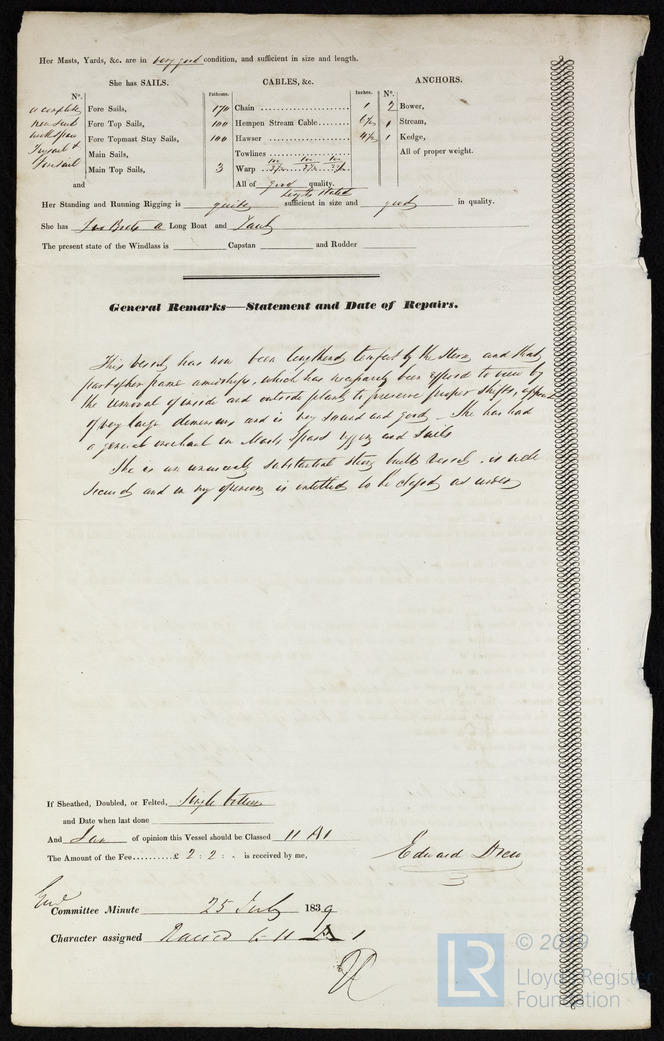 Her Masts, Yards, &c. are in very good condition, and sufficient in size and length.
She has SAILS. CABLES, &c. ANCHORS.
N°. Fathoms. Inches. N°.
a complete Fore Sails, 170 Chain 1 2 Bower,
Fore Top Sails, 100 Hempen Stream Cable 6½ 1 Stream,
Fore Topmast Stay Sails, 100 Hawser 4½ 1 Kedge,
Main Sails, Towlines All of proper weight.
Main Top Sails, 3 Warp
and All of good quality.
Her Standing and Running Rigging is quite sufficient in size and good in quality.
She has a Long Boat and
The present state of the Windlass is Capstan and Rudder
General Remarks—Statement and Date of Repairs.
This vessel has now been lengthened ten feet by the stern and that
part of her frame amidships, which has necessarily been exposed to view by
the removal of inside and outside plank to preserve proper shifts, appears
of very large dimensions and is very sound and good - She has had
a general overhaul in Masts Spars rigging and Sails
She is an unusually substantial strong built vessel, is well
secured and in my opinion is entitled to be classed as under
If Sheathed, Doubled, or Felted, Single bottom
and Date when last done
And I am of opinion this Vessel should be Classed 11 A1
The Amount of the Fee..........£ 2 : 2 : . is received by me,
Edward Drew
Committee Minute 25 July 1839
Character assigned 11 A 1
LR
© 2019
Lloyd's Register
Foundation